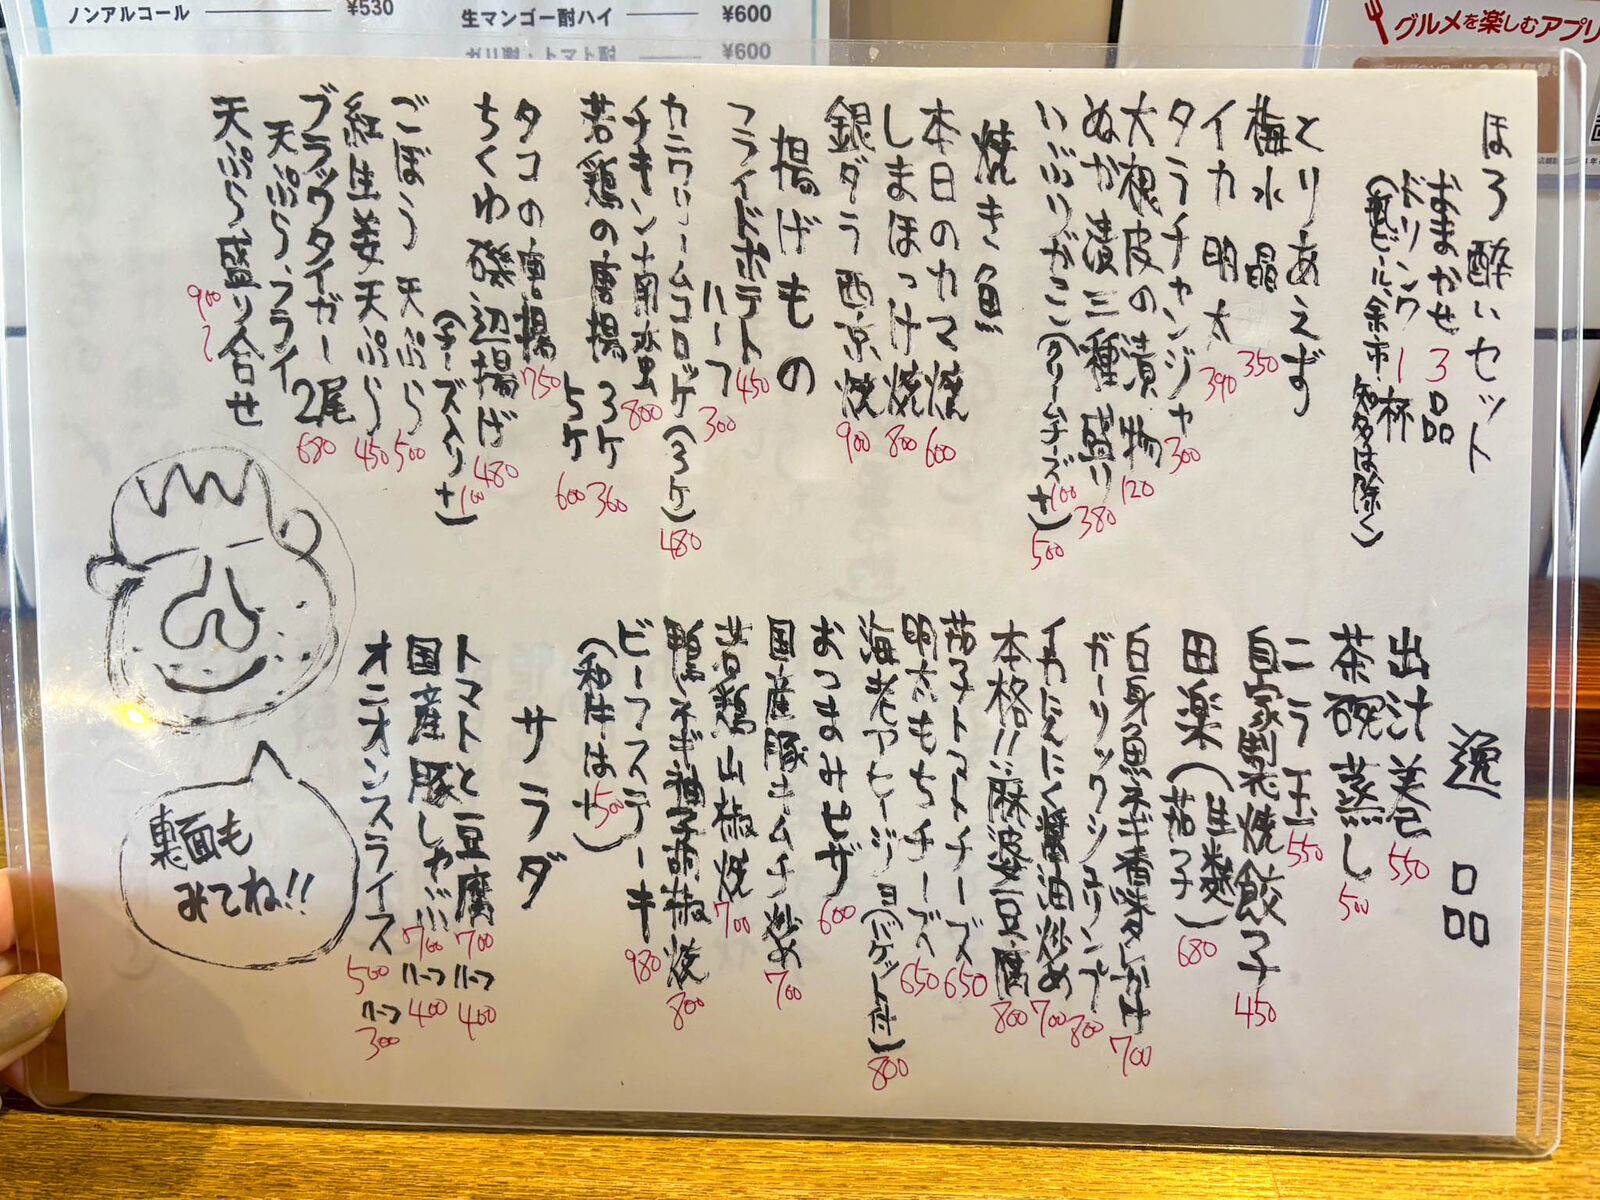 ノンアルコール ¥530
生マンゴー酎ハイ ¥600
ガリ酎・トマト酎 ¥600
グルメを楽しむアプリ
ほろ酔いセット
おまかせ 3品
ドリンク 1杯
は除く)
とりあえず
梅水晶 350
イカ明太 390
タラチャンジャ 300
大根皮の漬物 120
ぬか漬三種盛り 380
いぶりがっこ(クリームチーズ+100) 500
焼き魚
本日のカマ焼 600
しまほっけ焼 800
銀ダラ西京焼 900
揚げもの
フライドポテト 450
ハーフ 300
カニクリームコロッケ(3ケ) 480
チキン南蛮 800
若鶏の唐揚 3ケ 360
5ケ 600
タコの唐揚 750
ちくわ磯辺揚げ 480
(チーズ入り+100)
ごぼう天ぷら 500
紅生姜天ぷら 450
ブラックタイガー2尾 680
天ぷら、フライ
天ぷら盛り合せ 900〜
逸品
出汁巻 550
茶碗蒸し 500
ニラ玉 550
自家製焼餃子 450
田楽(生麩)(茄子) 680
白身魚ネギ 700
ガーリックシュリンプ 800
イカにんにく醤油炒め 700
本格!!麻婆豆腐 800
茄子トマトチーズ 650
明太もちチーズ 650
海老アヒージョ(バゲット付) 800
おつまみピザ 600
国産豚キムチ炒め 700
若鶏山椒焼 700
鴨ネギ柚子胡椒焼 800
ビーフステーキ 980
(和牛は+500)
サラダ
トマトと豆腐 700 ハーフ 400
国産豚しゃぶ 700 ハーフ 400
オニオンスライス 500 ハーフ 300
裏面も
みてね!!